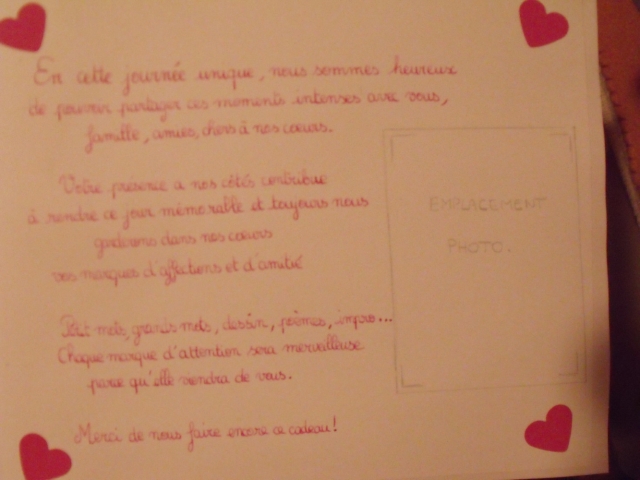 En cette journée unique, nous sommes heureux
de pouvoir partager ces moments intenses avec vous,
famille, amies, chers à nos coeurs.
Votre presence a nos côtés contribue
à rendre ce jour mémorable et toujours nous
garderons dans nos coeurs
vos marques d'affections et d'amitié
EMPLACEMENT
PHOTO.
Petit mots, grands mots, dessin, poèmes, impro...
Chaque marque d'attention sera merveilleuse
parce qu'elle viendra de vous.
Merci de nous faire encore ce cadeau!